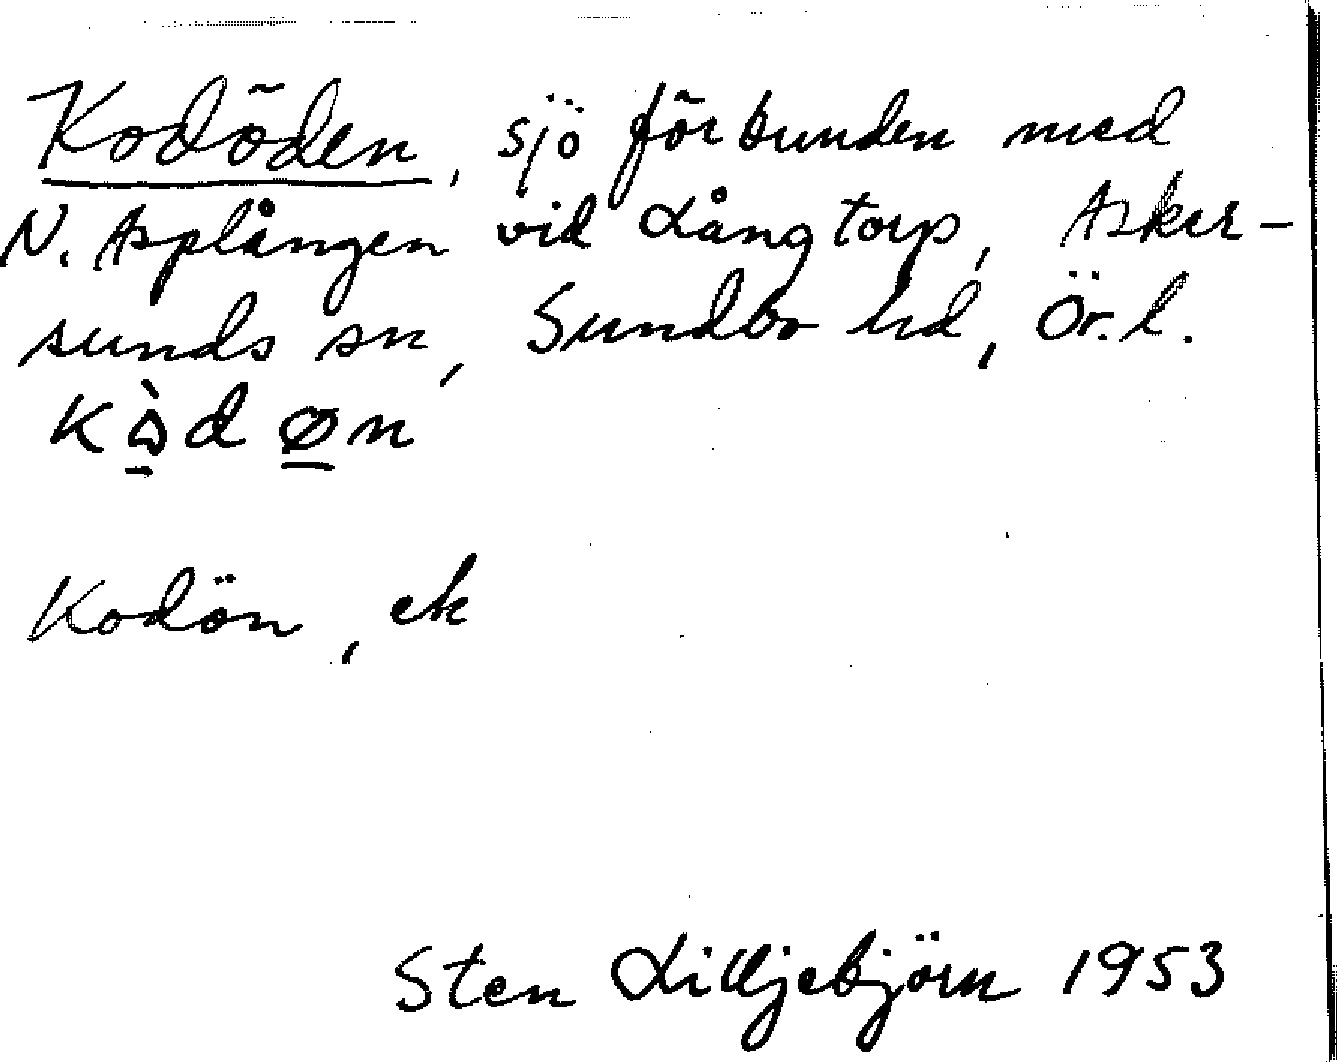 Kodöden, sjö förbunden med
N. Asplången vid Långtorp, Asker-
sunds sn, Sundbo hd, Ör. l.
Kodön, ek
Sten Lilljebjörn 1953